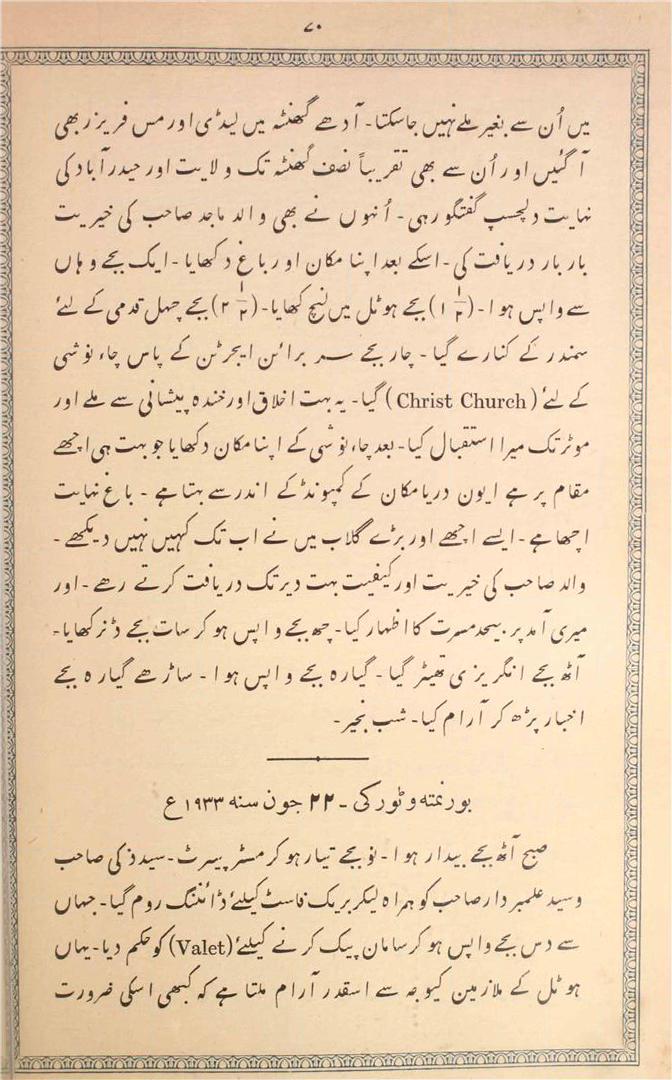 ۷۰
میں اُن سے بغیر ملے نہیں جاسکتا۔ آدھے گھنٹہ میں لیڈی اور مس فریزر بھی
آگئیں اور اُن سے بھی تقریباً نصف گھنٹہ تک ولایت اور حیدرآباد کی
نہایت دلچسپ گفتگو رہی۔ اُنہوں نے بھی والد ماجد صاحب کی خیریت
بار بار دریافت کی۔ اسکے بعد اپنا مکان اور باغ دکھایا۔ ایک بجے وہاں
سے واپس ہوا۔ (۱ ۱/۲) بجے ہوٹل میں لنچ کھایا۔ (۲ ۱/۲) بجے چہل قدمی کے لئے
سمندر کے کنارے گیا۔ چار بجے سر برائن ایجرٹن کے پاس چاء نوشی
کے لئے (Christ Church) گیا۔ یہ بہت اخلاق اور خندہ پیشانی سے ملے اور
موٹر تک میرا استقبال کیا۔ بعد چاء نوشی کے اپنا مکان دکھایا جو بہت ہی اچھے
مقام پر ہے ایون دریا مکان کے کمپونڈ کے اندر سے بہتا ہے۔ باغ نہایت
اچھا ہے۔ ایسے اچھے اور بڑے گلاب میں نے اب تک کہیں نہیں دیکھے۔
والد صاحب کی خیریت اور کیفیت بہت دیر تک دریافت کرتے رہے۔ اور
میری آمد پر بیحد مسرت کا اظہار کیا۔ چھ بجے واپس ہو کر سات بجے ڈنر کھایا۔
آٹھ بجے انگریزی تھیٹر گیا۔ گیارہ بجے واپس ہوا۔ ساڑھے گیارہ بجے
اخبار پڑھ کر آرام کیا۔ شب بخیر۔
بورنمتہ وٹورکی۔ ۲۲ جون سنہ ۱۹۳۳ ع
صبح آٹھ بجے بیدار ہوا۔ نو بجے تیار ہو کر مسٹر پیرٹ۔ سید ذکی صاحب
وسید علمبردار صاحب کو ہمراہ لیکر بریک فاسٹ کیلئے ڈائننگ روم گیا۔ جہاں
سے دس بجے واپس ہو کر سامان پیک کرنے کیلئے (Valet) کو حکم دیا۔ یہاں
ہوٹل کے ملازمین کیوجہ سے اسقدر آرام ملتا ہے کہ کبھی اسکی ضرورت